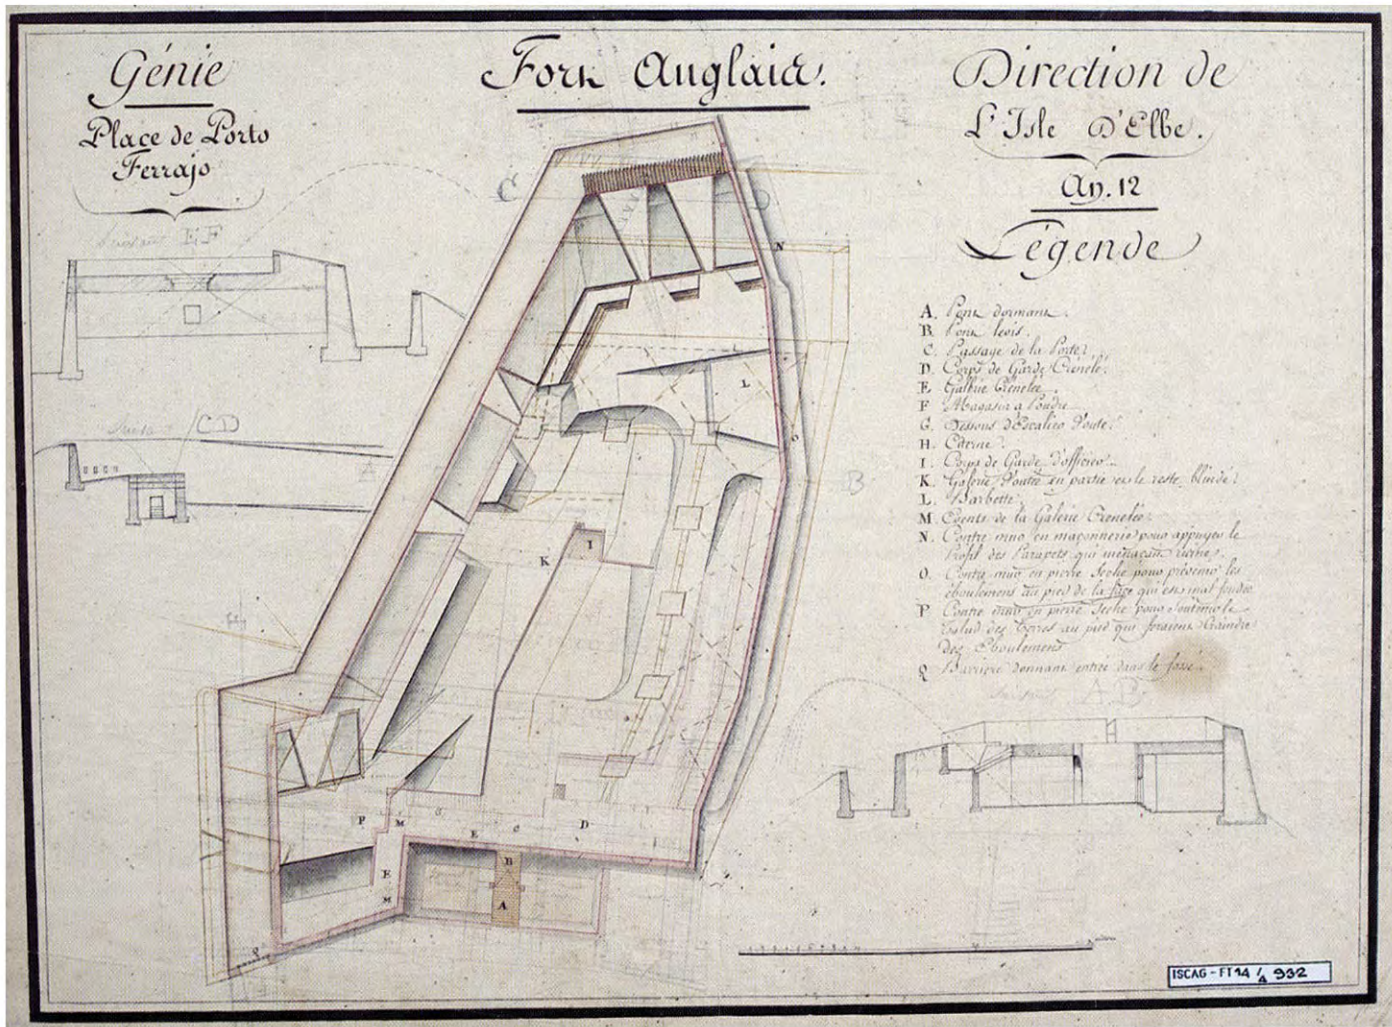 Génie
Place de Porto
Ferrajo
Fort Anglais.
Direction de
L'Isle D'Elbe.
An. 12
Légende
A. Pont dormant.
B. Pont levis.
C. Passage de la Porte.
D. Corps de Garde Crénelé.
E. Gallerie Crénelée
F. Magasin a Poudre
G. Dessous d'Escalier Vouté.
H. Citerne.
I. Corps de Garde d'officier.
K. Galerie Voutée en partie et le reste blindé.
L. Barbette.
M. de la Galerie Crenelée.
N. Contre mur en maçonnerie pour appuyer le
Profil des Parapets qui menaçait ruine.
O. Contre mur en pierre Seche pour prévenir les
éboulemens au pied de la face qui est mal fondée
P Contre mur en pierre Seche pour Soutenir le
Talud des Terres au pied qui feraient Craindre
des Eboulemens
Q Barriere donnant entrée dans le fossé.
EF
CD
A B
C
D
A
B
N
L
O
I
K
P
M
E
C
D
B
E
M
A
Q
ISCAG - FT 14/A 932